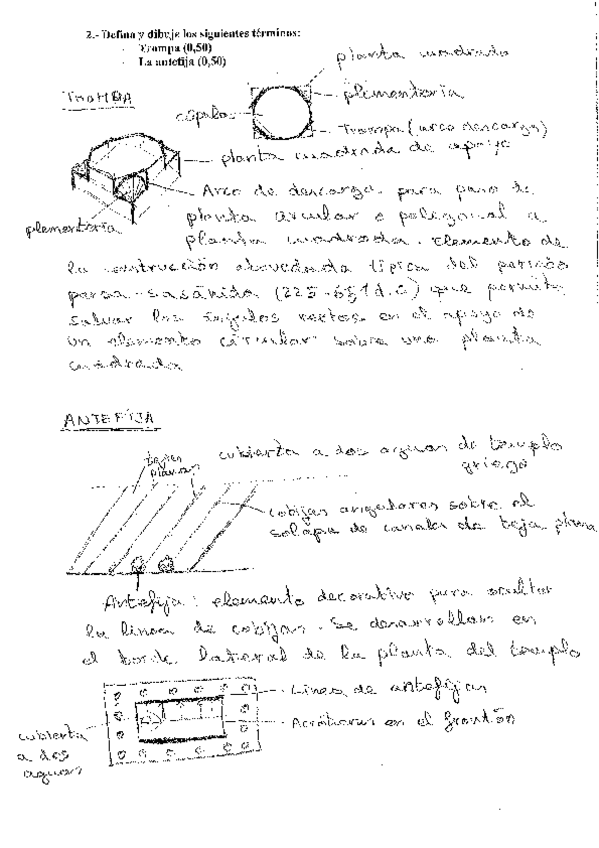 2.- Defina y dibuje los siguientes términos:
- Trompa (0,50)
- La antefija (0,50)
planta cuadrada
TROMPA
plementería
cúpula
Trompa (arco descarga)
planta cuadrada de apoyo
Arco de descarga para paso de
plementería
planta circular o poligonal a
planta cuadrada. Elemento de
la construcción abovedada típica del periodo
persa-sasánida (225-651 d.C) que permite
salvar los ángulos rectos en el apoyo de
un elemento circular sobre una planta
cuadrada
ANTEFIJA
tejas
planas
cubierta a dos aguas de templo
griego
cobijas sobre el
solape de canales de teja plana
Antefija: elemento decorativo para ocultar
la línea de cobijas. Se desarrollan en
el borde lateral de la planta del templo
Línea de antefijas
Acróteras en el frontón
cubierta
a dos
aguas